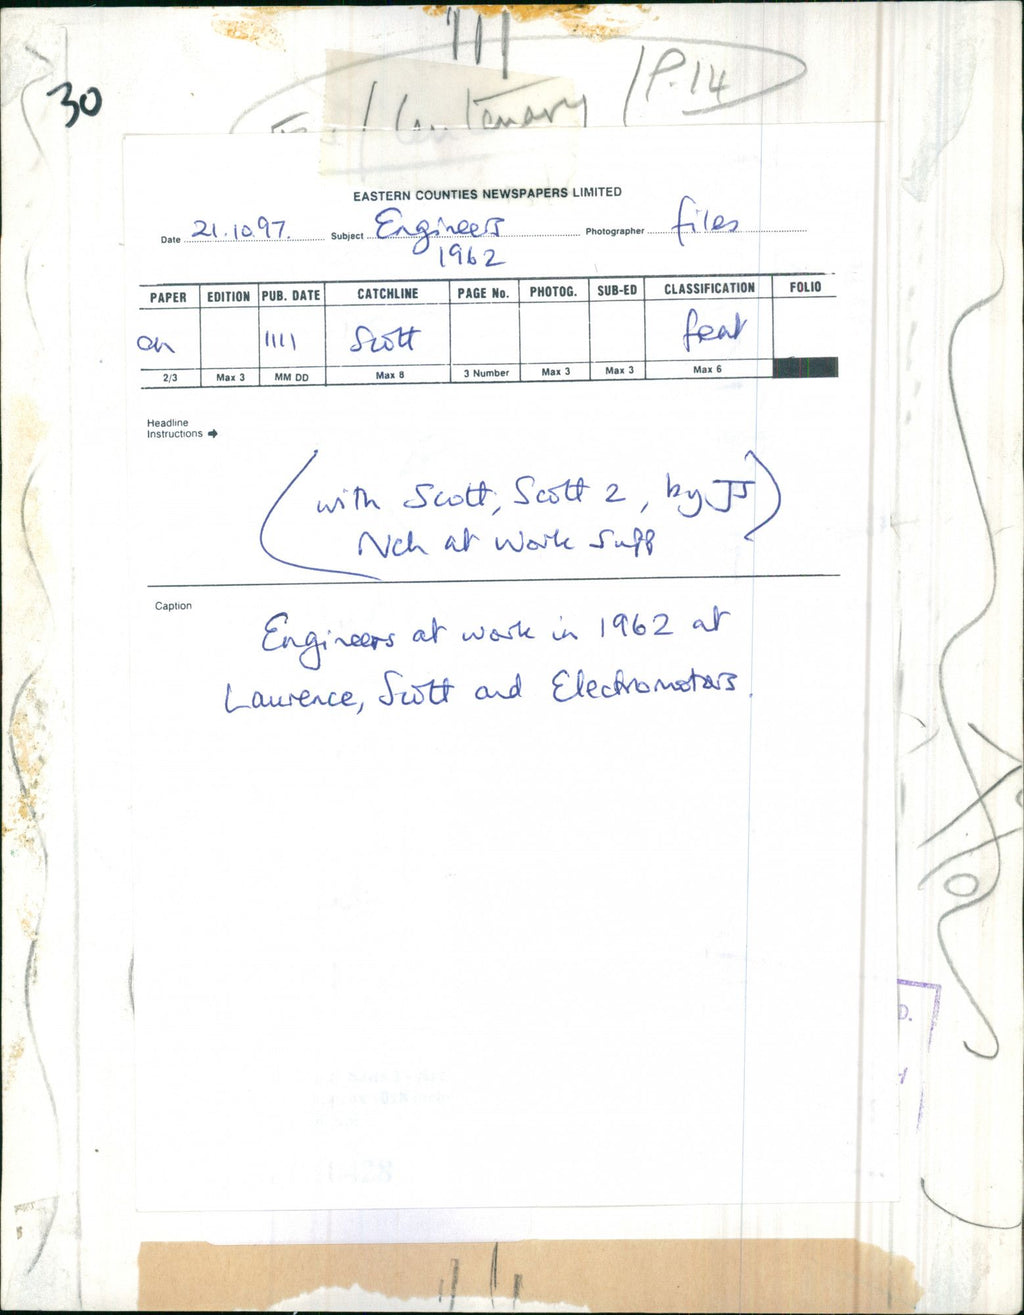 30
Centenary P.14
EASTERN COUNTIES NEWSPAPERS LIMITED
Date 21.10.97. Subject Engineers Photographer files
1962
PAPER EDITION PUB. DATE CATCHLINE PAGE No. PHOTOG. SUB-ED CLASSIFICATION FOLIO
en 1111 Scott feat
2/3 Max 3 MM DD Max 8 3 Number Max 3 Max 3 Max 6
Headline
Instructions →
(with Scott, Scott 2, by JS)
Nch at Work Supp
Caption
Engineers at work in 1962 at
Laurence, Scott and Electromotors.
D.